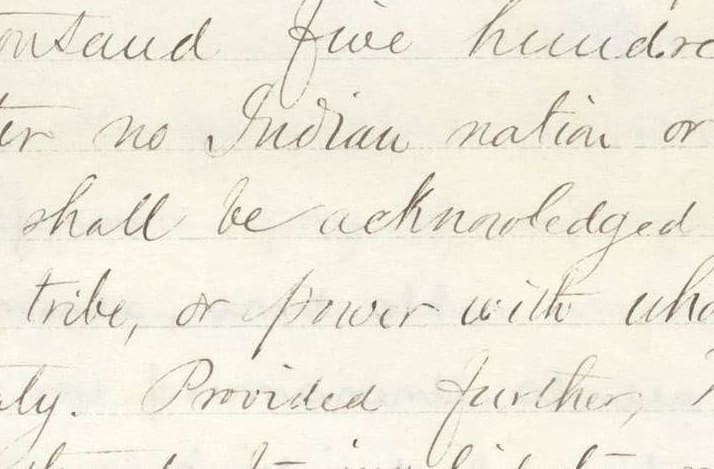 ousand five hundre
ter no Indian nation or
shall be acknowledged
tribe, or power with who
aty. Provided further,